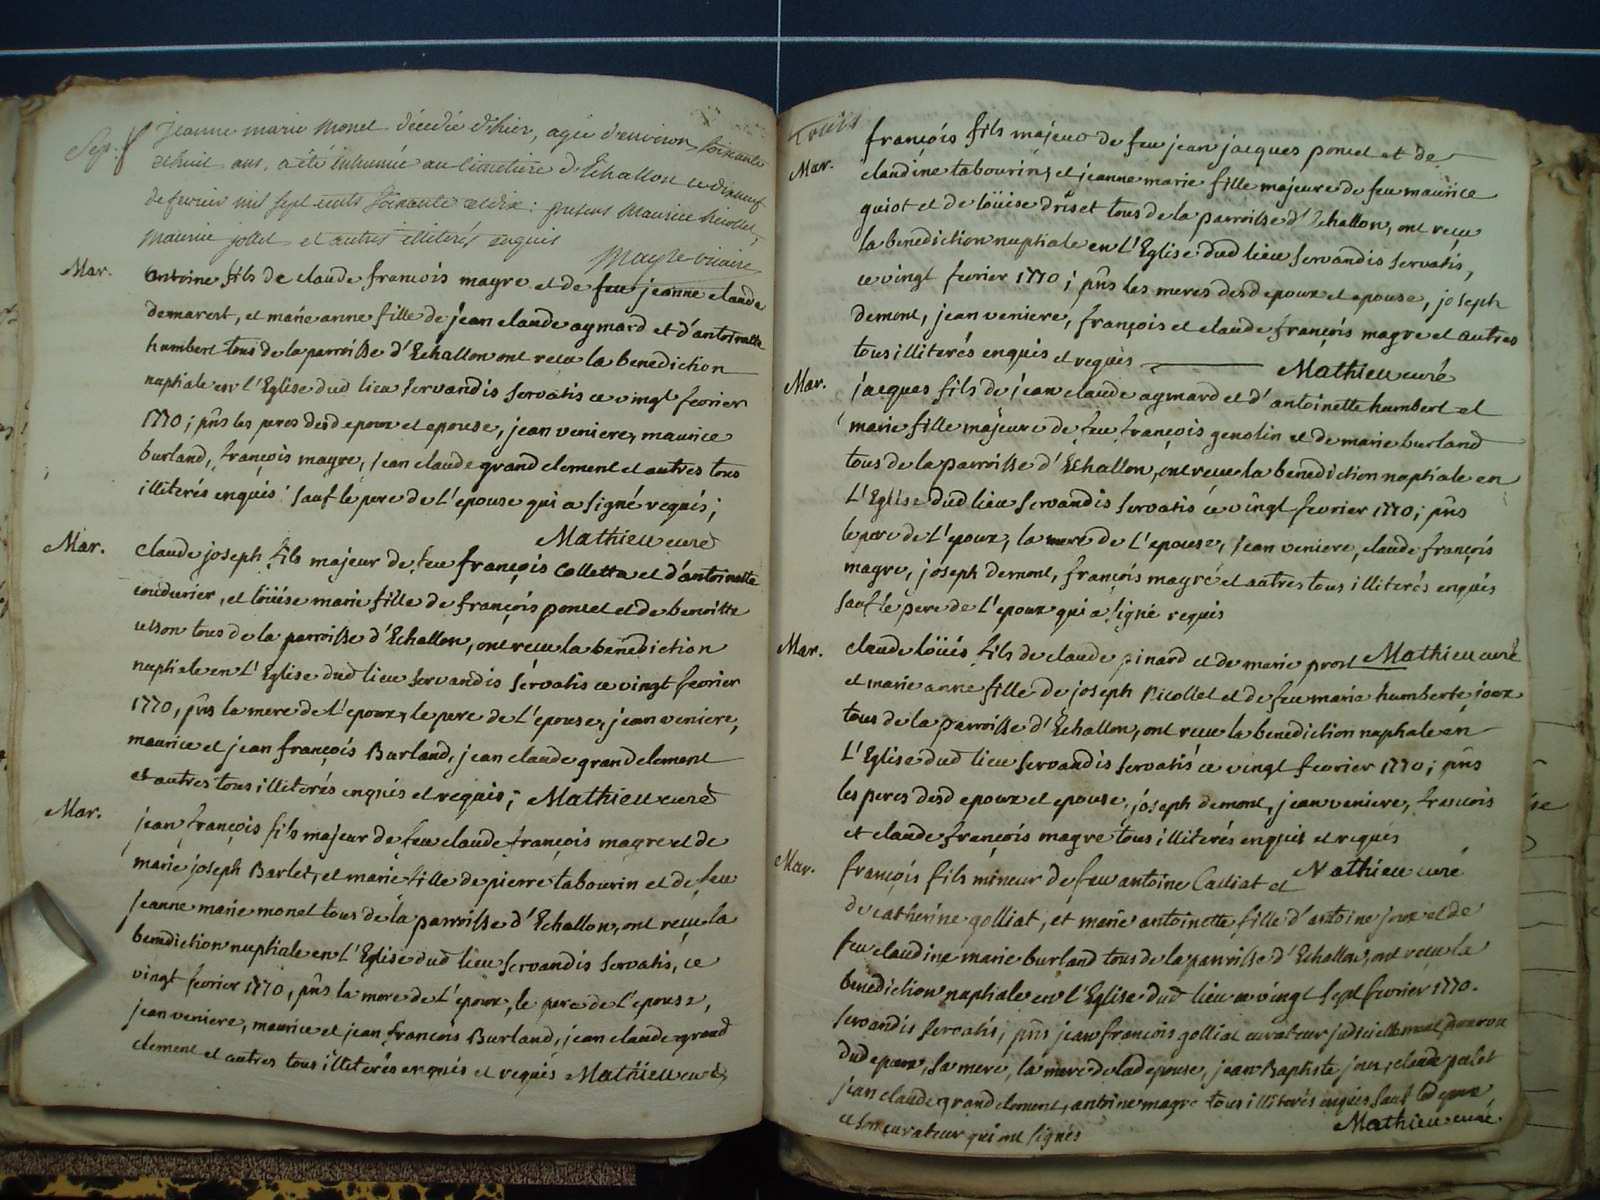 Sep. jeanne marie monet décedée d'hier, agée d'environ soixante
et huit ans, a été inhumée au cimetiere d'Echallon ce dixneuf
de fevrier mil sept cents soixante et dix : presens maurice nicollet,
maurice jollet et autres illiterés enquis
Mayre vicaire
Mar. antoine fils de claude françois magre et de feu jeanne claude
demarest, et marie anne fille de jean claude aymard et d'antoinette
humbert tous de la parroisse d'Echallon ont recu la benediction
nuptiale en l'Eglise dud lieu servandis servatis ce vingt fevrier
1770 ; pñs les peres desd epoux et epouse, jean veniere, maurice
burland, françois magre, jean claude grand clement et autres tous
illiterés enquis sauf le pere de l'epouse qui a signé requis ;
Mathieu curé
Mar. claude joseph fils majeur de feu françois Colletta et d'antoinette
coudurier, et loüise marie fille de françois poncet et de benoitte
tous de la parroisse d'Echallon, ont recu la benediction
nuptiale en l'Eglise dud lieu servandis servatis ce vingt fevrier
1770, pñs la mere de l'epoux, le pere de l'epouse, jean veniere,
maurice et jean françois Burland, jean claude grand clement
et autres tous illiterés enquis et requis ; Mathieu curé
Mar. jean françois fils majeur de feu claude françois magre et de
marie joseph Barlet, et marie fille de pierre tabourin et de feu
jeanne marie monet tous de la parroisse d'Echallon, ont reçu la
benediction nuptiale en l'Eglise dud lieu servandis servatis, ce
vingt fevrier 1770, pñs la mere de l'epoux, le pere de l'epouse,
jean veniere, maurice et jean françois Burland, jean claude grand
clement et autres tous illiterés enquis et requis Mathieu curé
Trois
Mar. françois fils majeur de feu jean jacques poncet et de
claudine tabourin, et jeanne marie fille majeure de feu maurice
guiot et de loüise driset tous de la parroisse d'Echallon, ont recu
la benediction nuptiale en l'Eglise dud lieu servandis servatis,
ce vingt fevrier 1770 ; pñs les meres desd epoux et epouse, joseph
demont, jean veniere, françois et claude françois magre et autres
tous illiterés enquis et requis Mathieu curé
Mar. jacques fils de jean claude aymard et d'antoinette humbert et
marie fille majeure de feu françois genolin et de marie burland
tous de la parroisse d'Echallon, ont recu la benediction nuptiale en
l'Eglise dud lieu servandis servatis ce vingt fevrier 1770 ; pñs
le pere de l'epoux, la mere de l'epouse, jean veniere, claude françois
magre, joseph demont, françois magre et autres tous illiterés enquis
sauf le pere de l'epoux qui a signé requis
Mathieu curé
Mar. claude loüis fils de claude pinard et de marie prost
et marie anne fille de joseph Nicollet et de feu marie humberte joux
tous de la parroisse d'Echallon, ont recu la benediction nuptiale en
l'Eglise dud lieu servandis servatis ce vingt fevrier 1770 ; pñs
les peres desd epoux et epouse, joseph demont, jean veniere, françois
et claude françois magre tous illiterés enquis et requis
Mathieu curé
Mar. françois fils mineur de feu antoine Calliat et
de catherine golliat, et marie antoinette fille d'antoine joux et de
feu claudine marie burland tous de la parroisse d'Echallon, ont recu la
benediction nuptiale en l'Eglise dud lieu ce vingt sept fevrier 1770.
servandis servatis, pñs jean françois golliat curateur judiciellement pourvu
dud epoux, sa mere, la mere de lad epouse, jean Baptiste joux, claude
jean claude grand clement, antoine magre tous illiterés enquis sauf led epoux
et son curateur qui ont signés
Mathieu curé